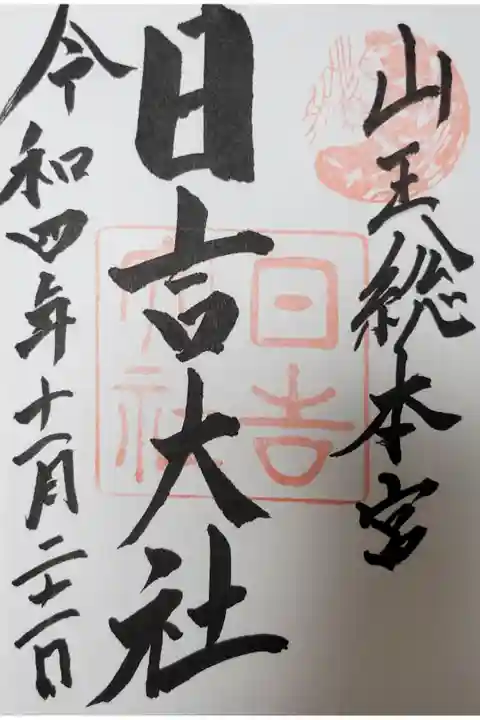 山王総本宮
日吉大社
日吉大社
令和四年十一月二十一日